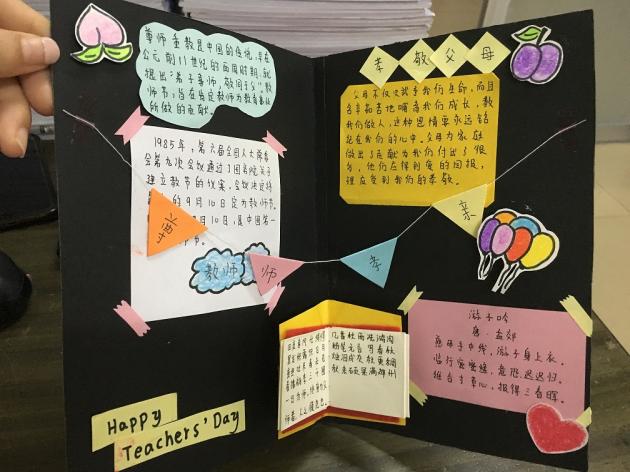 尊师重教是中国的传统,早在
公元前11世纪的西周时期,就
提出"弟子事师,敬同于父"。教
师节,旨在肯定教师为教育事业
所做的贡献。
1985年,第六届全国人大常委
会第九次会议通过了国务院关于
建立教师节的议案,会议决定将
的9月10日定为教师节。
月10日,是中国第一
教师
尊
师
孝
亲
Happy
Teachers' Day
孝敬父母
父母不仅仅赋予我们生命,而且
含辛茹苦地哺育我们成长,教
我们做人,这种恩情要永远铭
记在我们的心中。父母为家庭
做出了贡献为我们付出了很
多,他们应得到爱的回报,
理应受到我们的孝敬。
游子吟
唐·孟郊
慈母手中线,游子身上衣。
临行密密缝,意恐迟迟归。
谁言寸草心,报得三春晖。